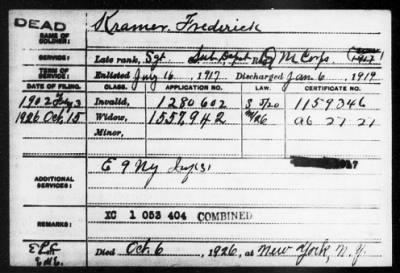 DEAD
Kramer, Frederick
NAME OF SOLDIER:
SERVICE: Late rank, Sgt. Sub. Depot Q M Corps,
TERM OF SERVICE: Enlisted July 16, 1917 Discharged Jan. 6, 1919
DATE OF FILING. CLASS. APPLICATION NO. LAW. CERTIFICATE NO.
1902 July 3 Invalid, 1280602 1159346
1926 Oct. 15 Widow, 1557942
Minor,
ADDITIONAL SERVICES: E 9 NY Inf
REMARKS: XC 1 053 404 COMBINED
Died Oct. 6, 1926, at New York, N.Y.